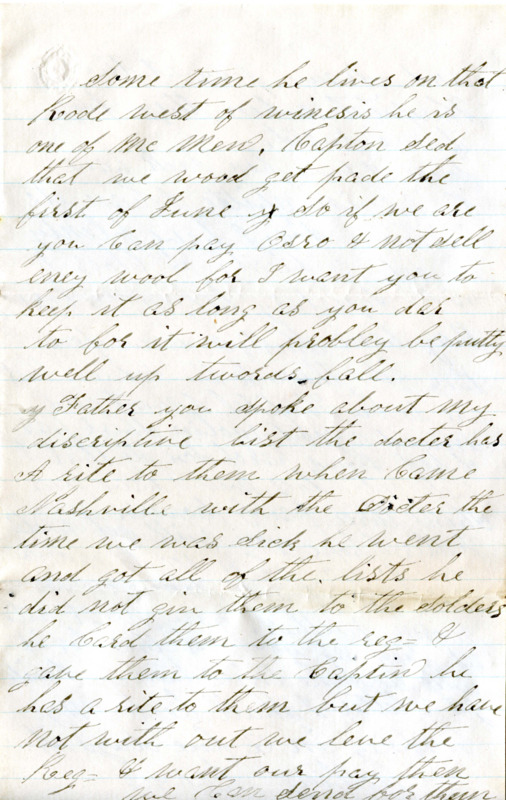 Some time he lives on that
Rode west of winesis he is
one of Mc Men. Capton sed
that we wood get pade the
first of June & so if we are
you Can pay Osro & not sell
eney wool for I want you to
keep it as long as you dar
to for it will probley be putty
well up twords fall.
Father you spoke about my
discriptive list the docter has
A rite to them when Came
Nashville with the Docter the
time we was sick he went
and got all of the lists he
did not giv them to the Solders
he Card them to the reg= &
gave them to the Captin he
has a rite to them but we have
not with out we leve the
Reg= & want our pay then
we Can send for them